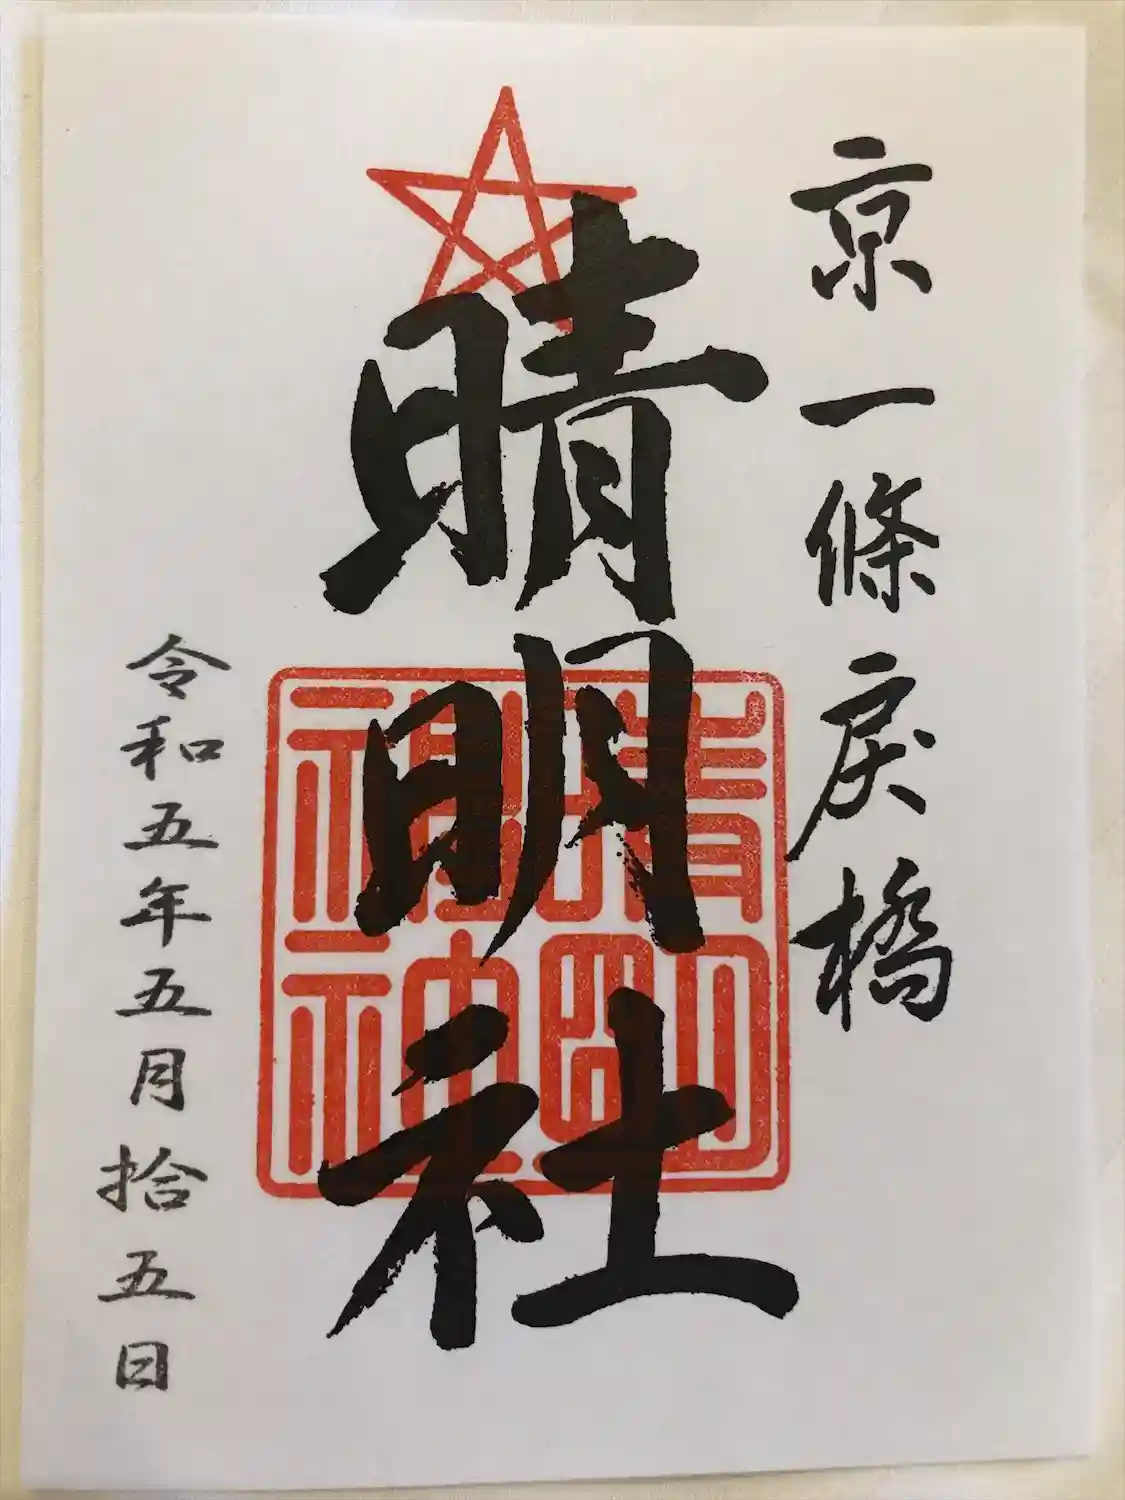 京一條戻橋
晴明社
晴明
神社
令和五年五月拾五日